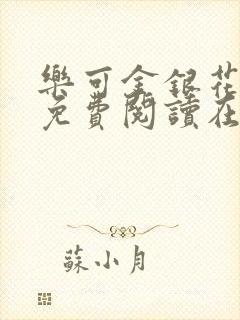 樂可金銀花
免費閱讀在
蘇小月